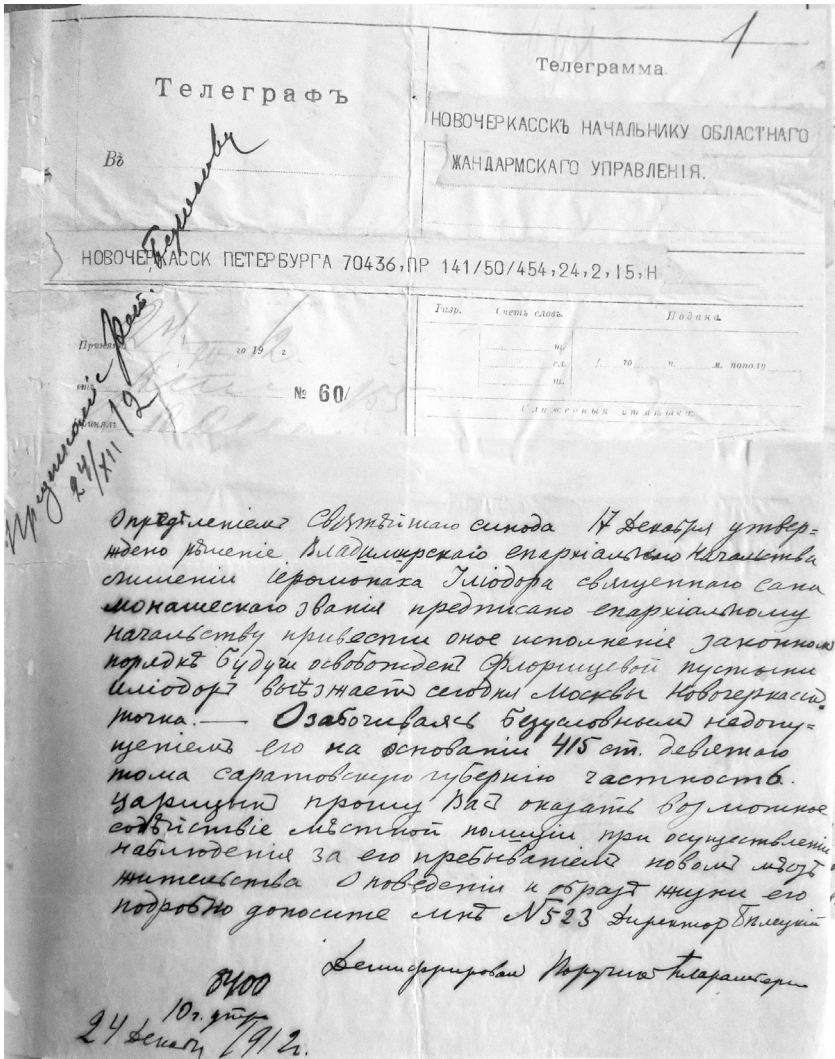 1
Телеграфъ
Телеграмма.
Въ
НОВОЧЕРКАССКЪ НАЧАЛЬНИКУ ОБЛАСТНАГО
ЖАНДАРМСКАГО УПРАВЛЕНІЯ.
НОВОЧЕРКАССК ПЕТЕРБУРГА 70436,ПР 141/50/454,24,2,15,Н
Принята
го 19 г
№ 60/
Принялъ
Разр.
Счетъ словъ.
Подана.
го ч. м. пополу
Служебныя отмѣтки:
24/XII 12
Опредѣленіемъ Святѣйшаго синода 17 Декабря утвер-
ждено рѣшеніе Владимирскаго епархіальнаго начальства
о лишеніи іеромонаха Иліодора священнаго сана
монашескаго званія предписано епархіальному
начальству привести оное исполненіе законномъ
порядкѣ будучи освобожденъ Флорищевой пустыни
Иліодоръ выѣзжаетъ сегодня Москвы Новочеркасскъ
точка. — Озабочиваясь безусловнымъ недопу=
щеніемъ его на основаніи 415 ст. девятаго
тома саратовскую губернію частность
Царицынъ прошу Васъ оказать возможное
содѣйствіе мѣстной полиціи при осуществленіи
наблюденія за его пребываніемъ новомъ мѣстѣ
жительства О поведеніи и образѣ жизни его
подробно доносите мнѣ №523 Директоръ Бѣлецкій
Дешифрировалъ Поручикъ
10 ч. утра
24 Декабря 1912 г.